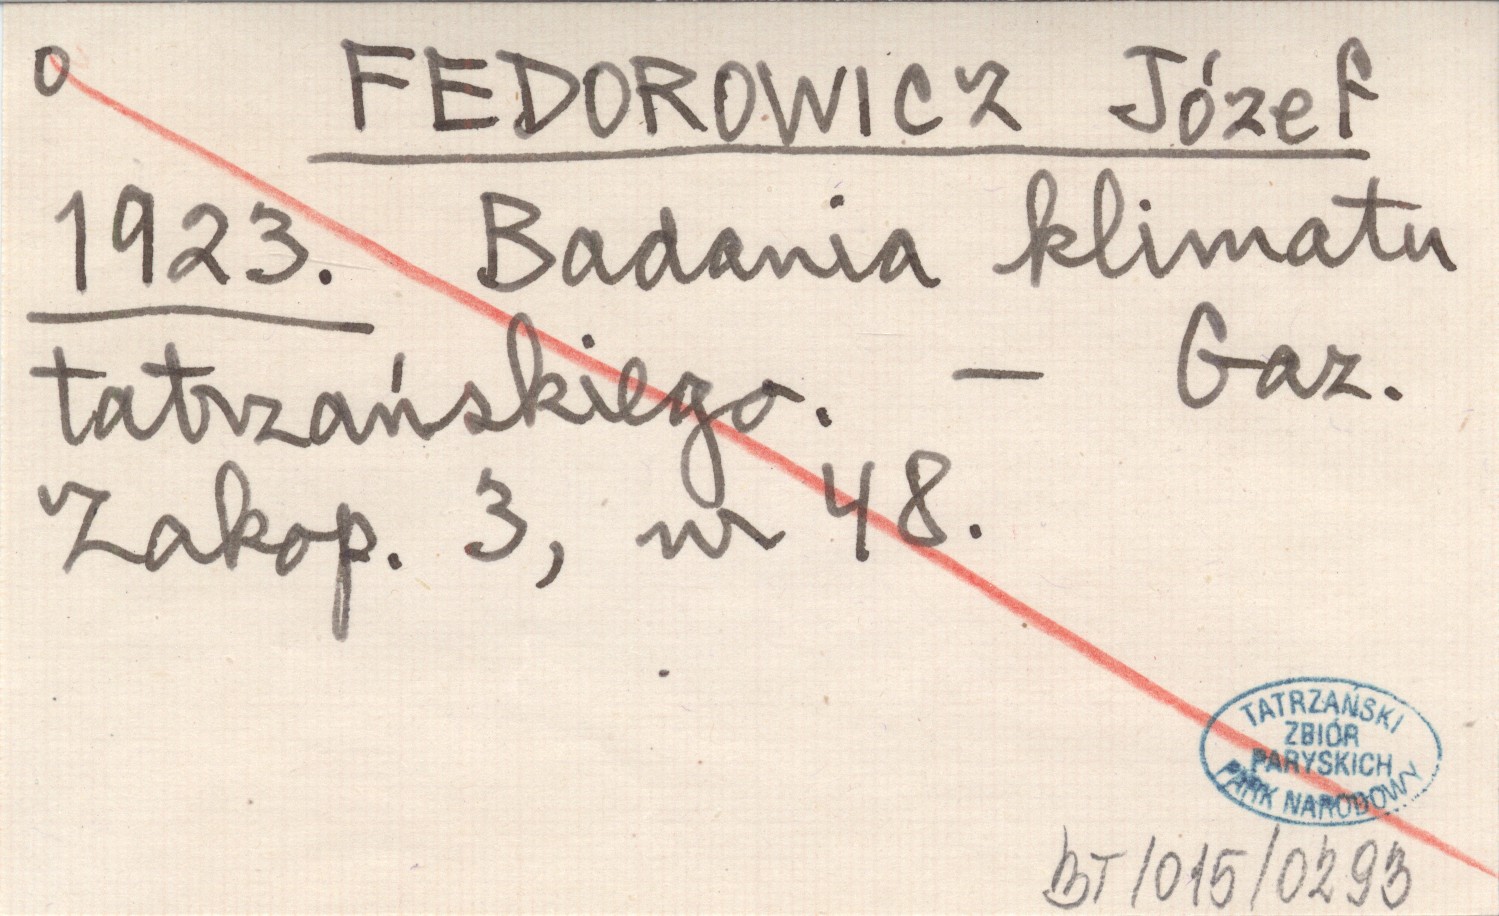 o FEDOROWICZ Józef
1923. Badania klimatu
tatrzańskiego. — Gaz.
Zakop. 3, nr 48.
TATRZAŃSKI
ZBIÓR
PARYSKICH
PARK NARODOWY
BT/015/0293